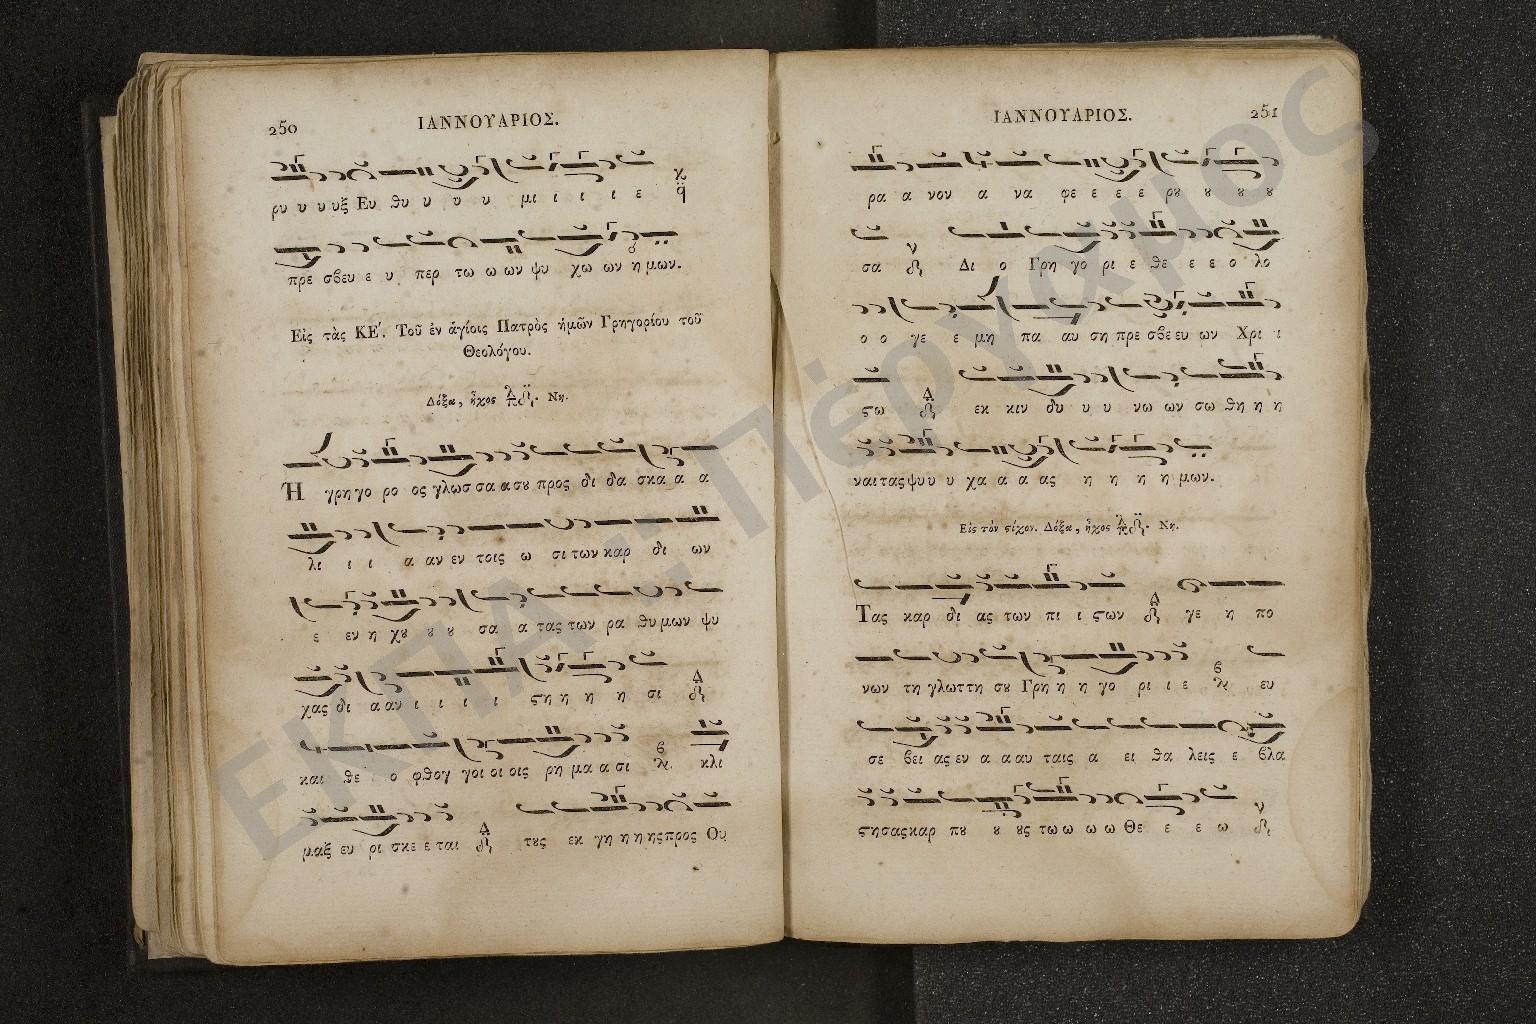 250
ΙΑΝΝΟΥΑΡΙΟΣ.
ρυ υ υ υξ Ευ θυ υ υ υ μι ι ι ι ε
πρε σβευ ε υ περ τω ω ων ψυ χω ων η μων.
Εἰς τὰς ΚΕ'. Τοῦ ἐν ἁγίοις Πατρὸς ἡμῶν Γρηγορίου τοῦ
Θεολόγου.
Δόξα, ἦχος πλ δ. Νη.
Ἡ γρη γο ρο ος γλωσ σα α σȣ προς δι δα σκα α α
λι ι ι α αν εν τοις ω σι των καρ δι ων
ε εν η χȣ ȣ ȣ σα α τας των ρα θυ μων ψυ
χας δι α αν ι ι ι ι ϛη η η η σι
και θε ο φθογ γοι οι οις ρη μα α σι κλι
μαξ ευ ρι σκε ε ται τȣς εκ γη η η ης προς Ου
251
ΙΑΝΝΟΥΑΡΙΟΣ.
ρα α νον α να φε ε ε ε ρȣ ȣ ȣ ȣ
σα Δι ο Γρη γο ρι ε θε ε ε ο λο
ο ο γε ε μη πα αυ ση πρε σβε ευ ων Χρι ι
ϛω εκ κιν δυ υ υ νω ων σω θη η η
ναι τας ψυ υ υ χα α α ας η η η η μων.
Εἰς τὸν ϛίχον. Δόξα, ἦχος πλ δ. Νη.
Τας καρ δι ας των πι ι ϛων γε η πο
νων τη γλωττη σȣ Γρη η η γο ρι ι ε ευ
σε βει ας εν α α αυ ταις α ει θα λεις ε βλα
ϛη σας καρ πȣ ȣ ȣς τω ω ω ω Θε ε ε ω
ΕΚΠΑ :: Πέργαμος